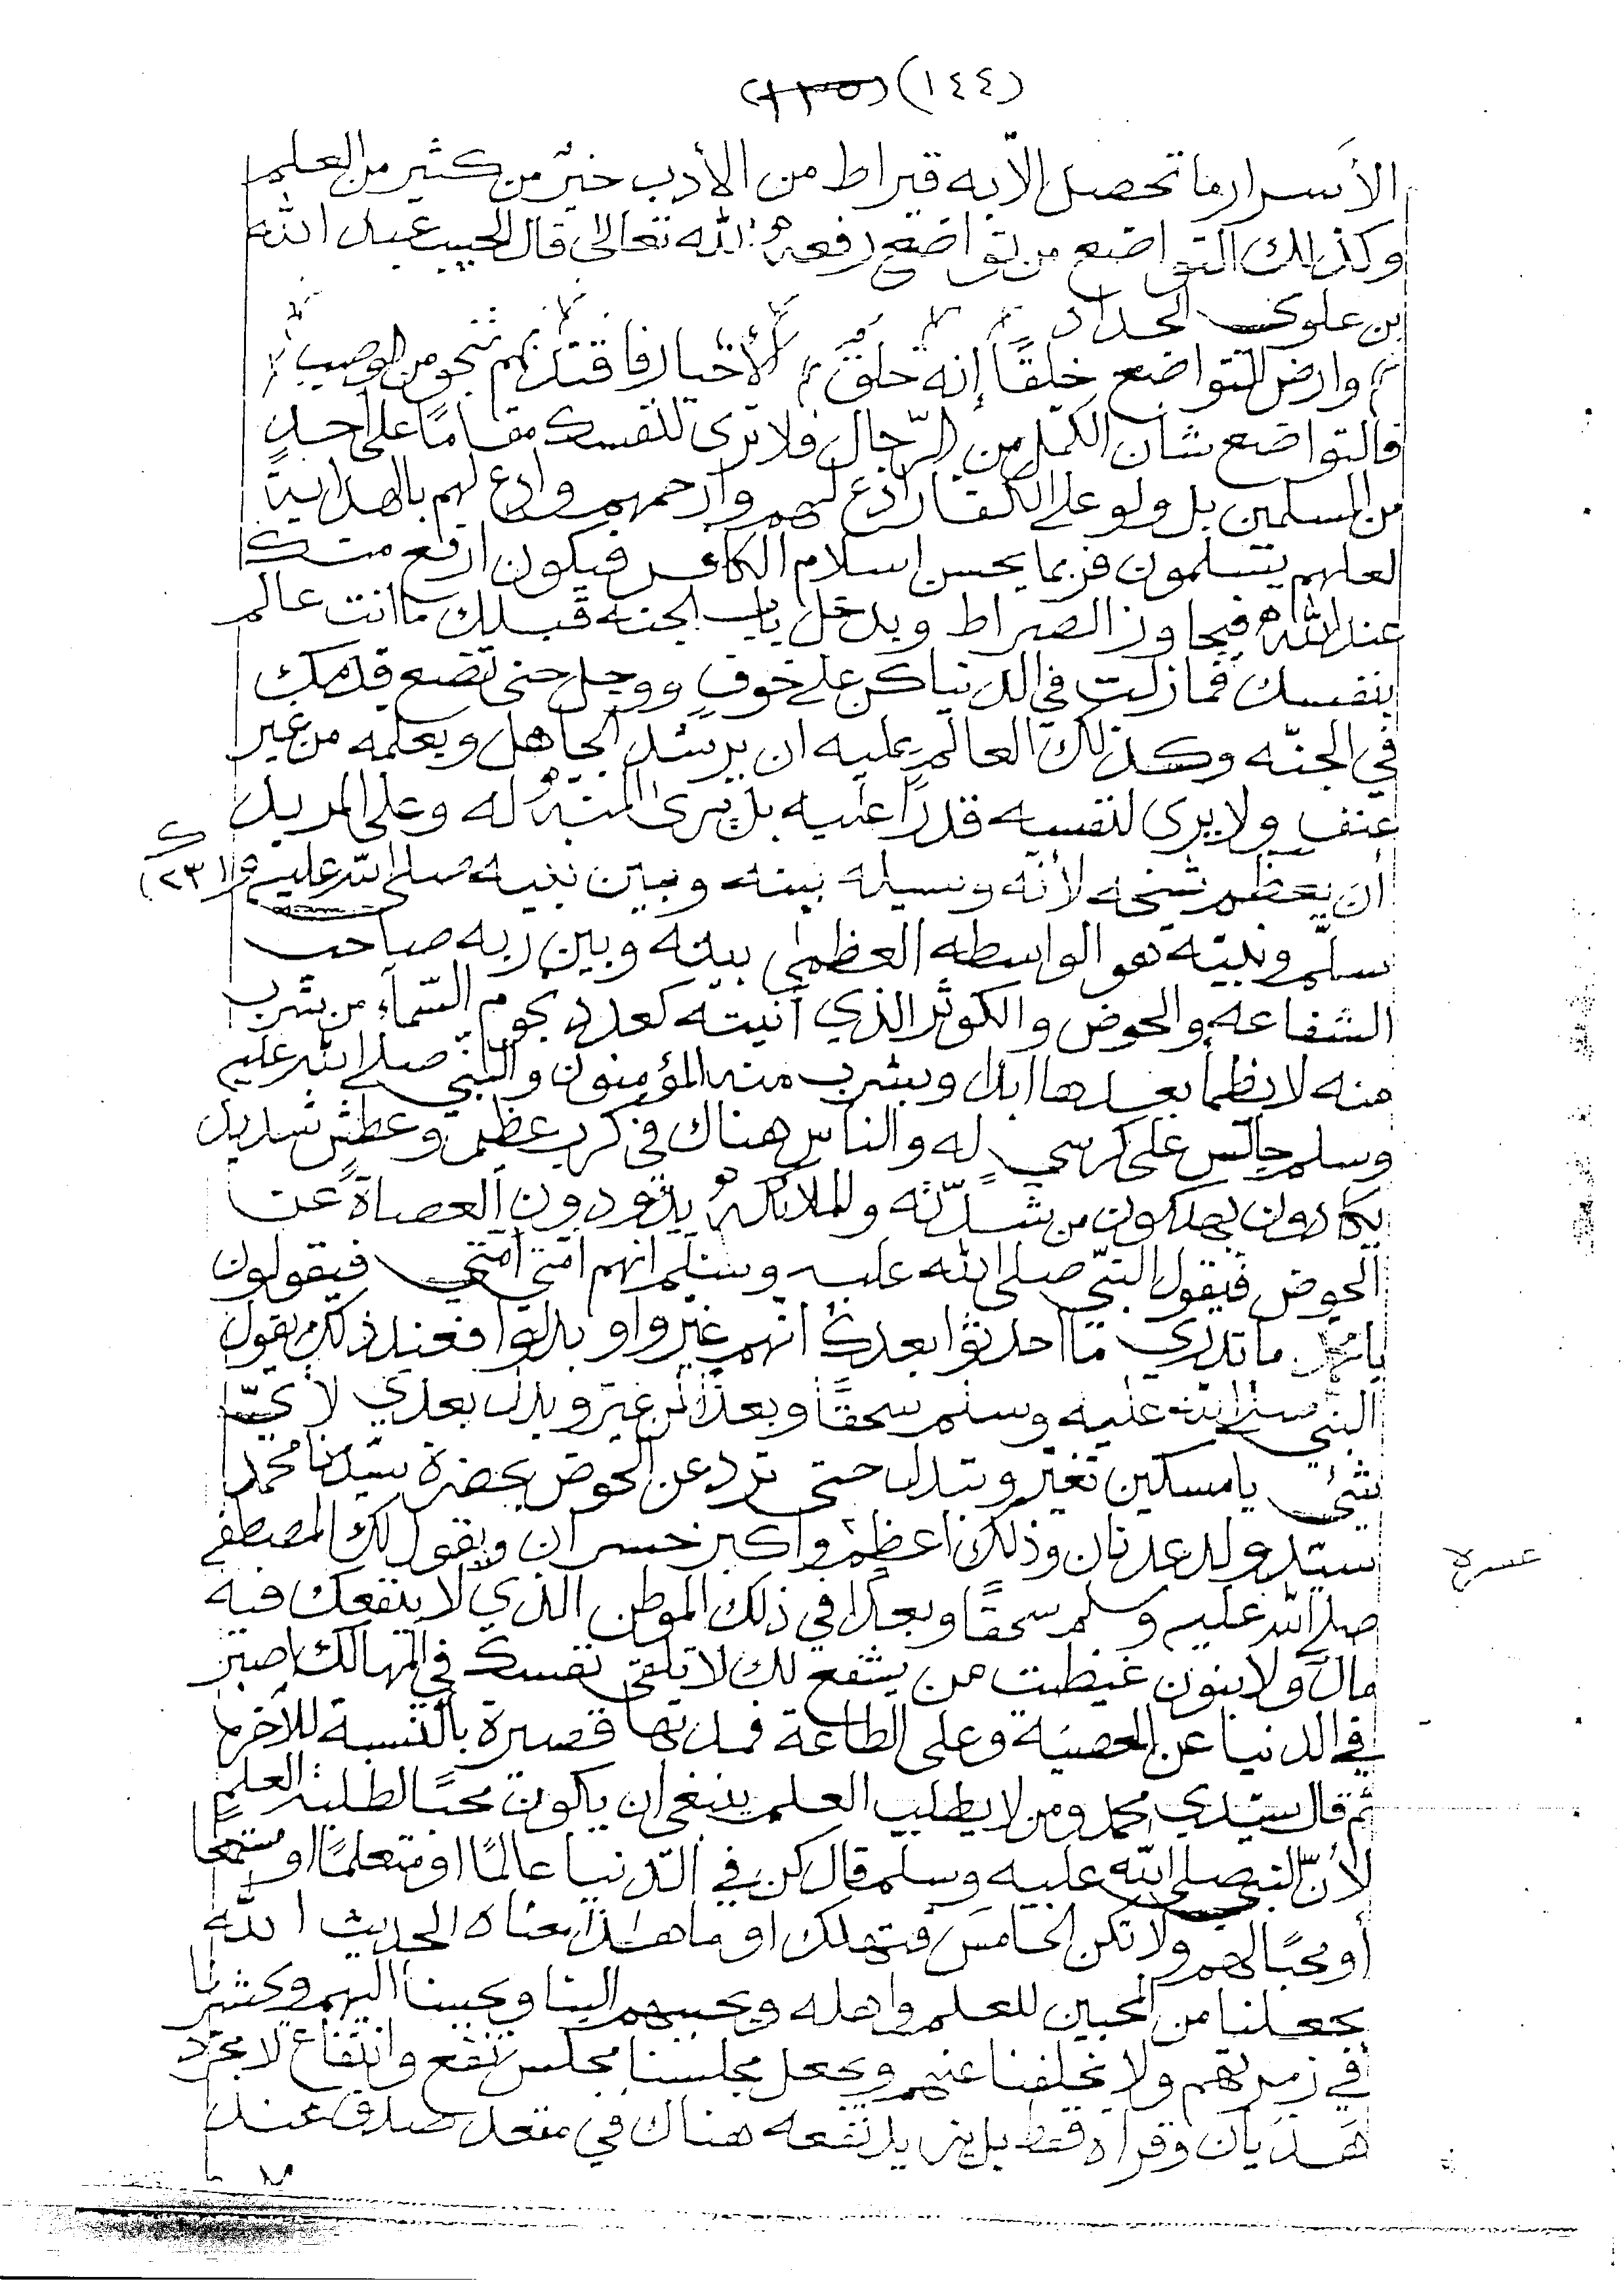 (١٤٤) (١٣٥)
الأسرار ما تحصل الّا به قيراط من الأدب خيرٌ من كثير من العلم
وكذلك التواضع من تواضع رفعهُ الله تعالى قال الحبيب عبد الله
بن علوي الحداد
وارض للتواضع خلقًا إنه خلقُ الأخيار فاقتد بهم تنجو من الوصب
فالتواضع شأن الكمّل من الرّجال فلا ترى لنفسك مقامًا على أحدٍ
من المسلمين بل ولو على الكفار ادع لهم وارحمهم وادع لهم بالهداية
لعلهم يسلمون فربما يحسن اسلام الكافر فيكون ارفع منك
عند الله فيجاوز الصراط ويدخل باب الجنه قبلك ما انت عالم
بنفسك فما زلت في الدنيا كن على خوفٍ ووجل حتى تضع قدمك
في الجنّه وكذلك العالم عليه ان يرشد الجاهل ويعلمه من غير
عنف ولا يرى لنفسه قدرًا عليه بل يرى المنّه له وعلى المريد
أن يعظم شيخه لأنّه وسيله بينه وبين نبيه صلى الله عليه و
(٢٣١)
سلّم ونبيّه هو الواسطه العظمى بينه وبين ربه صاحب
الشفاعه والحوض والكوثر الذي آنيته كعدد نجوم السّماء من شرب
منه لا يظمأ بعدها ابدا ويشرب منه المؤمنون والنّبي صلى الله عليه
وسلم جالسٌ على كرسيٍ له والناس هناك في كربٍ عظيم وعطش شديد
يكادون يهلكون من شدّته والملائكهُ يذودون العصاة عن
الحوض فيقول النبّي صلى الله عليه وسلّم انهم امّتي امّتي فيقولون
يا محمد ما تدري ما احدثوا بعدك انهم غيّروا وبدّلوا فعند ذلك يقول
النبّي صلى الله عليه وسلم سحقًا وبعدًا لمن غيّر وبدل بعدي لأيّ
شيْ يا مسكين تغيّر وتبدل حتى ترد عن الحوض بحضرة سيّدنا محمد
سيّد ولد عدنان وذلك اعظم واكبر خسران ويقول لك المصطفى
عسرة
صلى الله عليه وسلم سحقًا وبعدًا في ذلك الموطن الذي لا ينفعك فيه
مالٌ ولا بنون غيظت من يشفع لك لا تلقي نفسك في المهالك اصبر
في الدنيا عن المعصية وعلى الطاعة فمدتها قصيرة بالنّسبة للآخرة
ثم قال سيّدي محمد ومن لا يطلب العلم ينبغي ان يكون محبًا لطلبة العلم
لأنّ النبي صلى الله عليه وسلم قال كن في الدّنيا عالمًا او متعلمًا او مستمعا
أو محبًا لهم ولا تكن الخامس فتهلك او ما هذا معناه الحديث الله
يجعلنا من المحبين للعلم واهله ويحببهم الينا ويحببنا اليهم ويحشرنا
في زمرتهم ولا يخلفنا عنهم ويجعل مجلسنا مجلس نفع وانتفاع لا مجرّد
هذيان وقراه فقط بل يزيد نفعه هناك في مقعد صدق عند